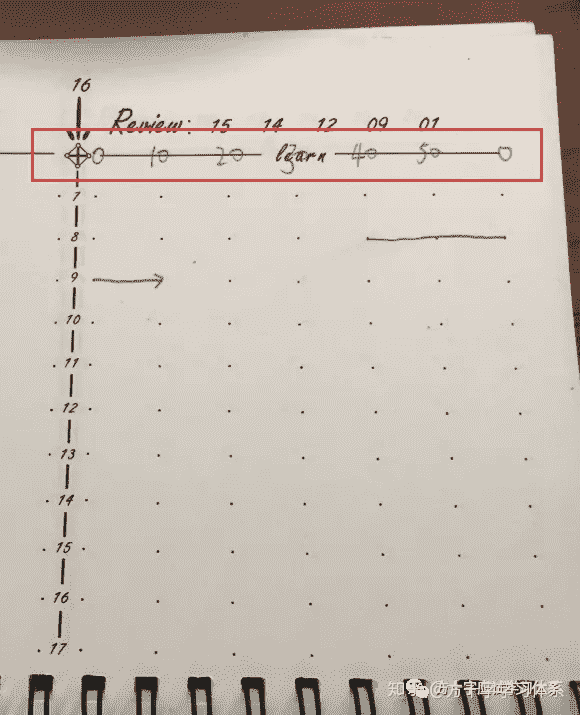 16
Review: 15 14 12 09 01
0 10 20 learn 30 40 50 0
7
8
9
10
11
12
13
14
15
16
17